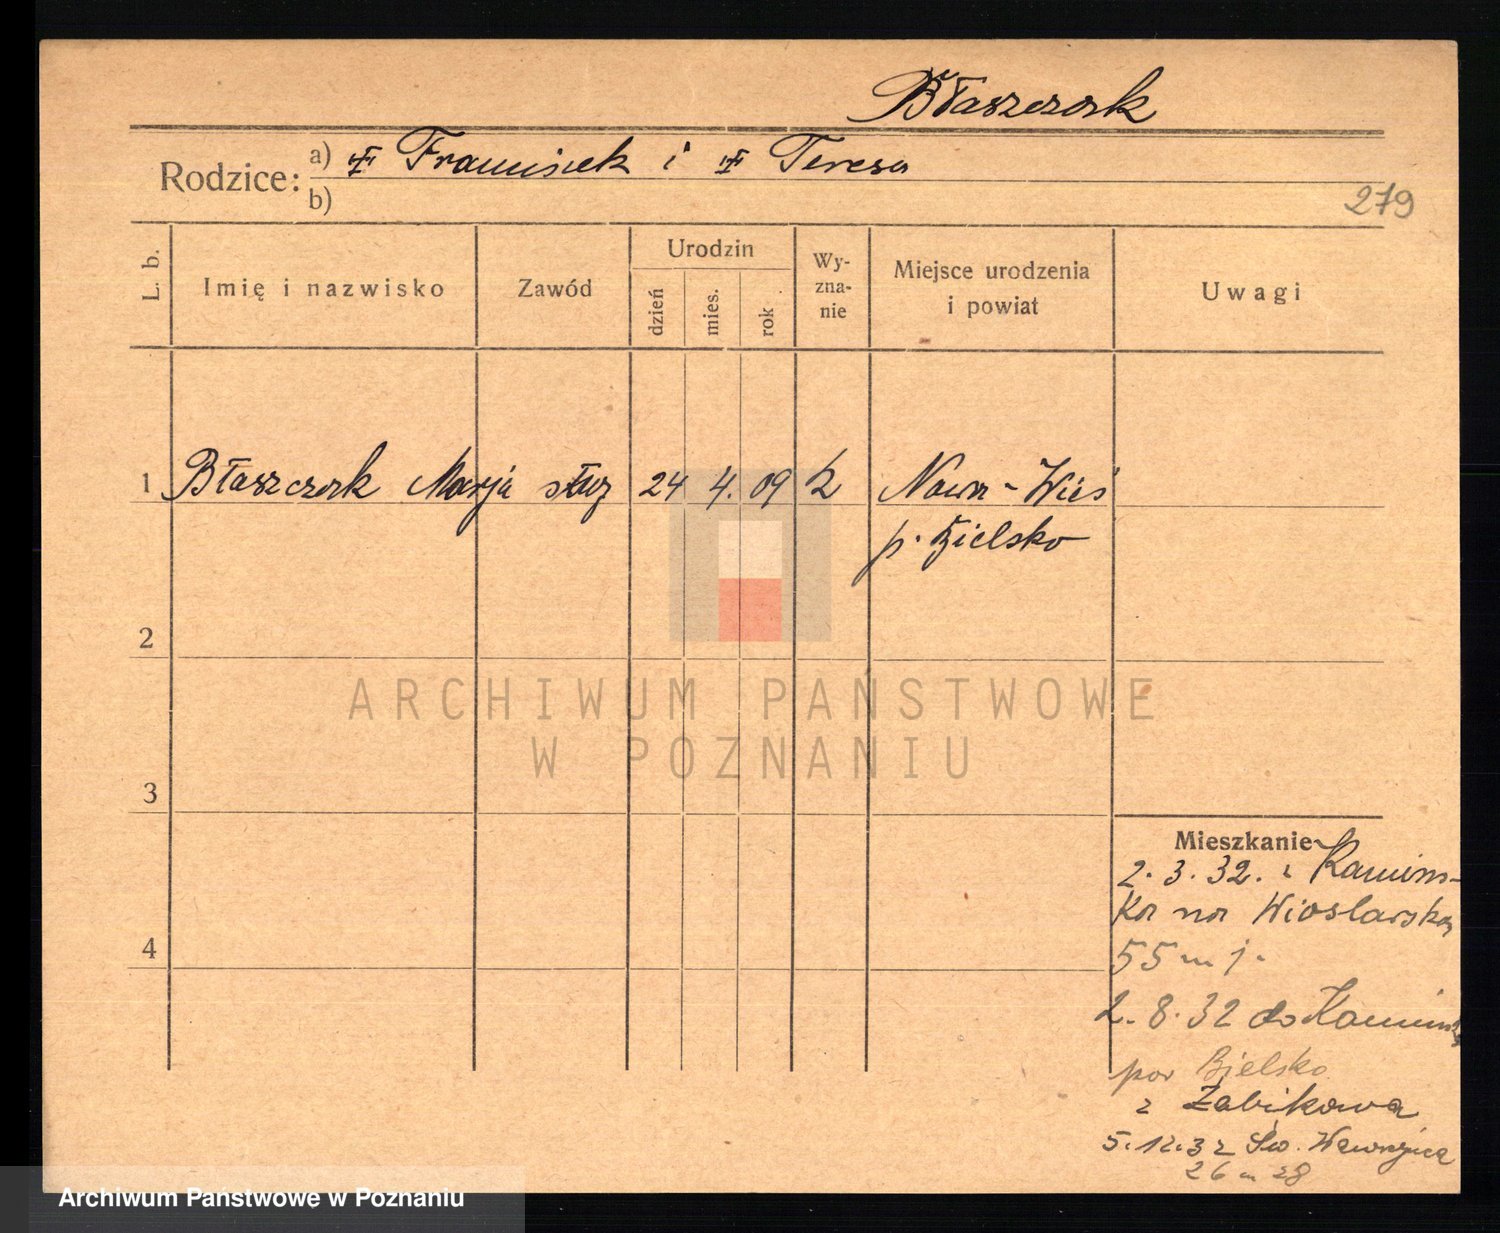 Błaszczak
Rodzice: a) Franciszek i Teresa
b)
279
L. b.
Imię i nazwisko
Zawód
Urodzin
dzień
mies.
rok
Wy-
zna-
nie
Miejsce urodzenia
i powiat
Uwagi
1 Błaszczak Marja służ 24 4. 09 k Nowa-Wieś
p. Bielsko
2
ARCHIWUM PAŃSTWOWE
W POZNANIU
3
Mieszkanie
2. 3. 32. z Kamins-
ka na Wioslarska
55 m 1.
4
2. 8. 32 do
pow Bielsko
z Żabikowa
5. 12. 32 Św. Wawrzyńca
26 m 28
Archiwum Państwowe w Poznaniu